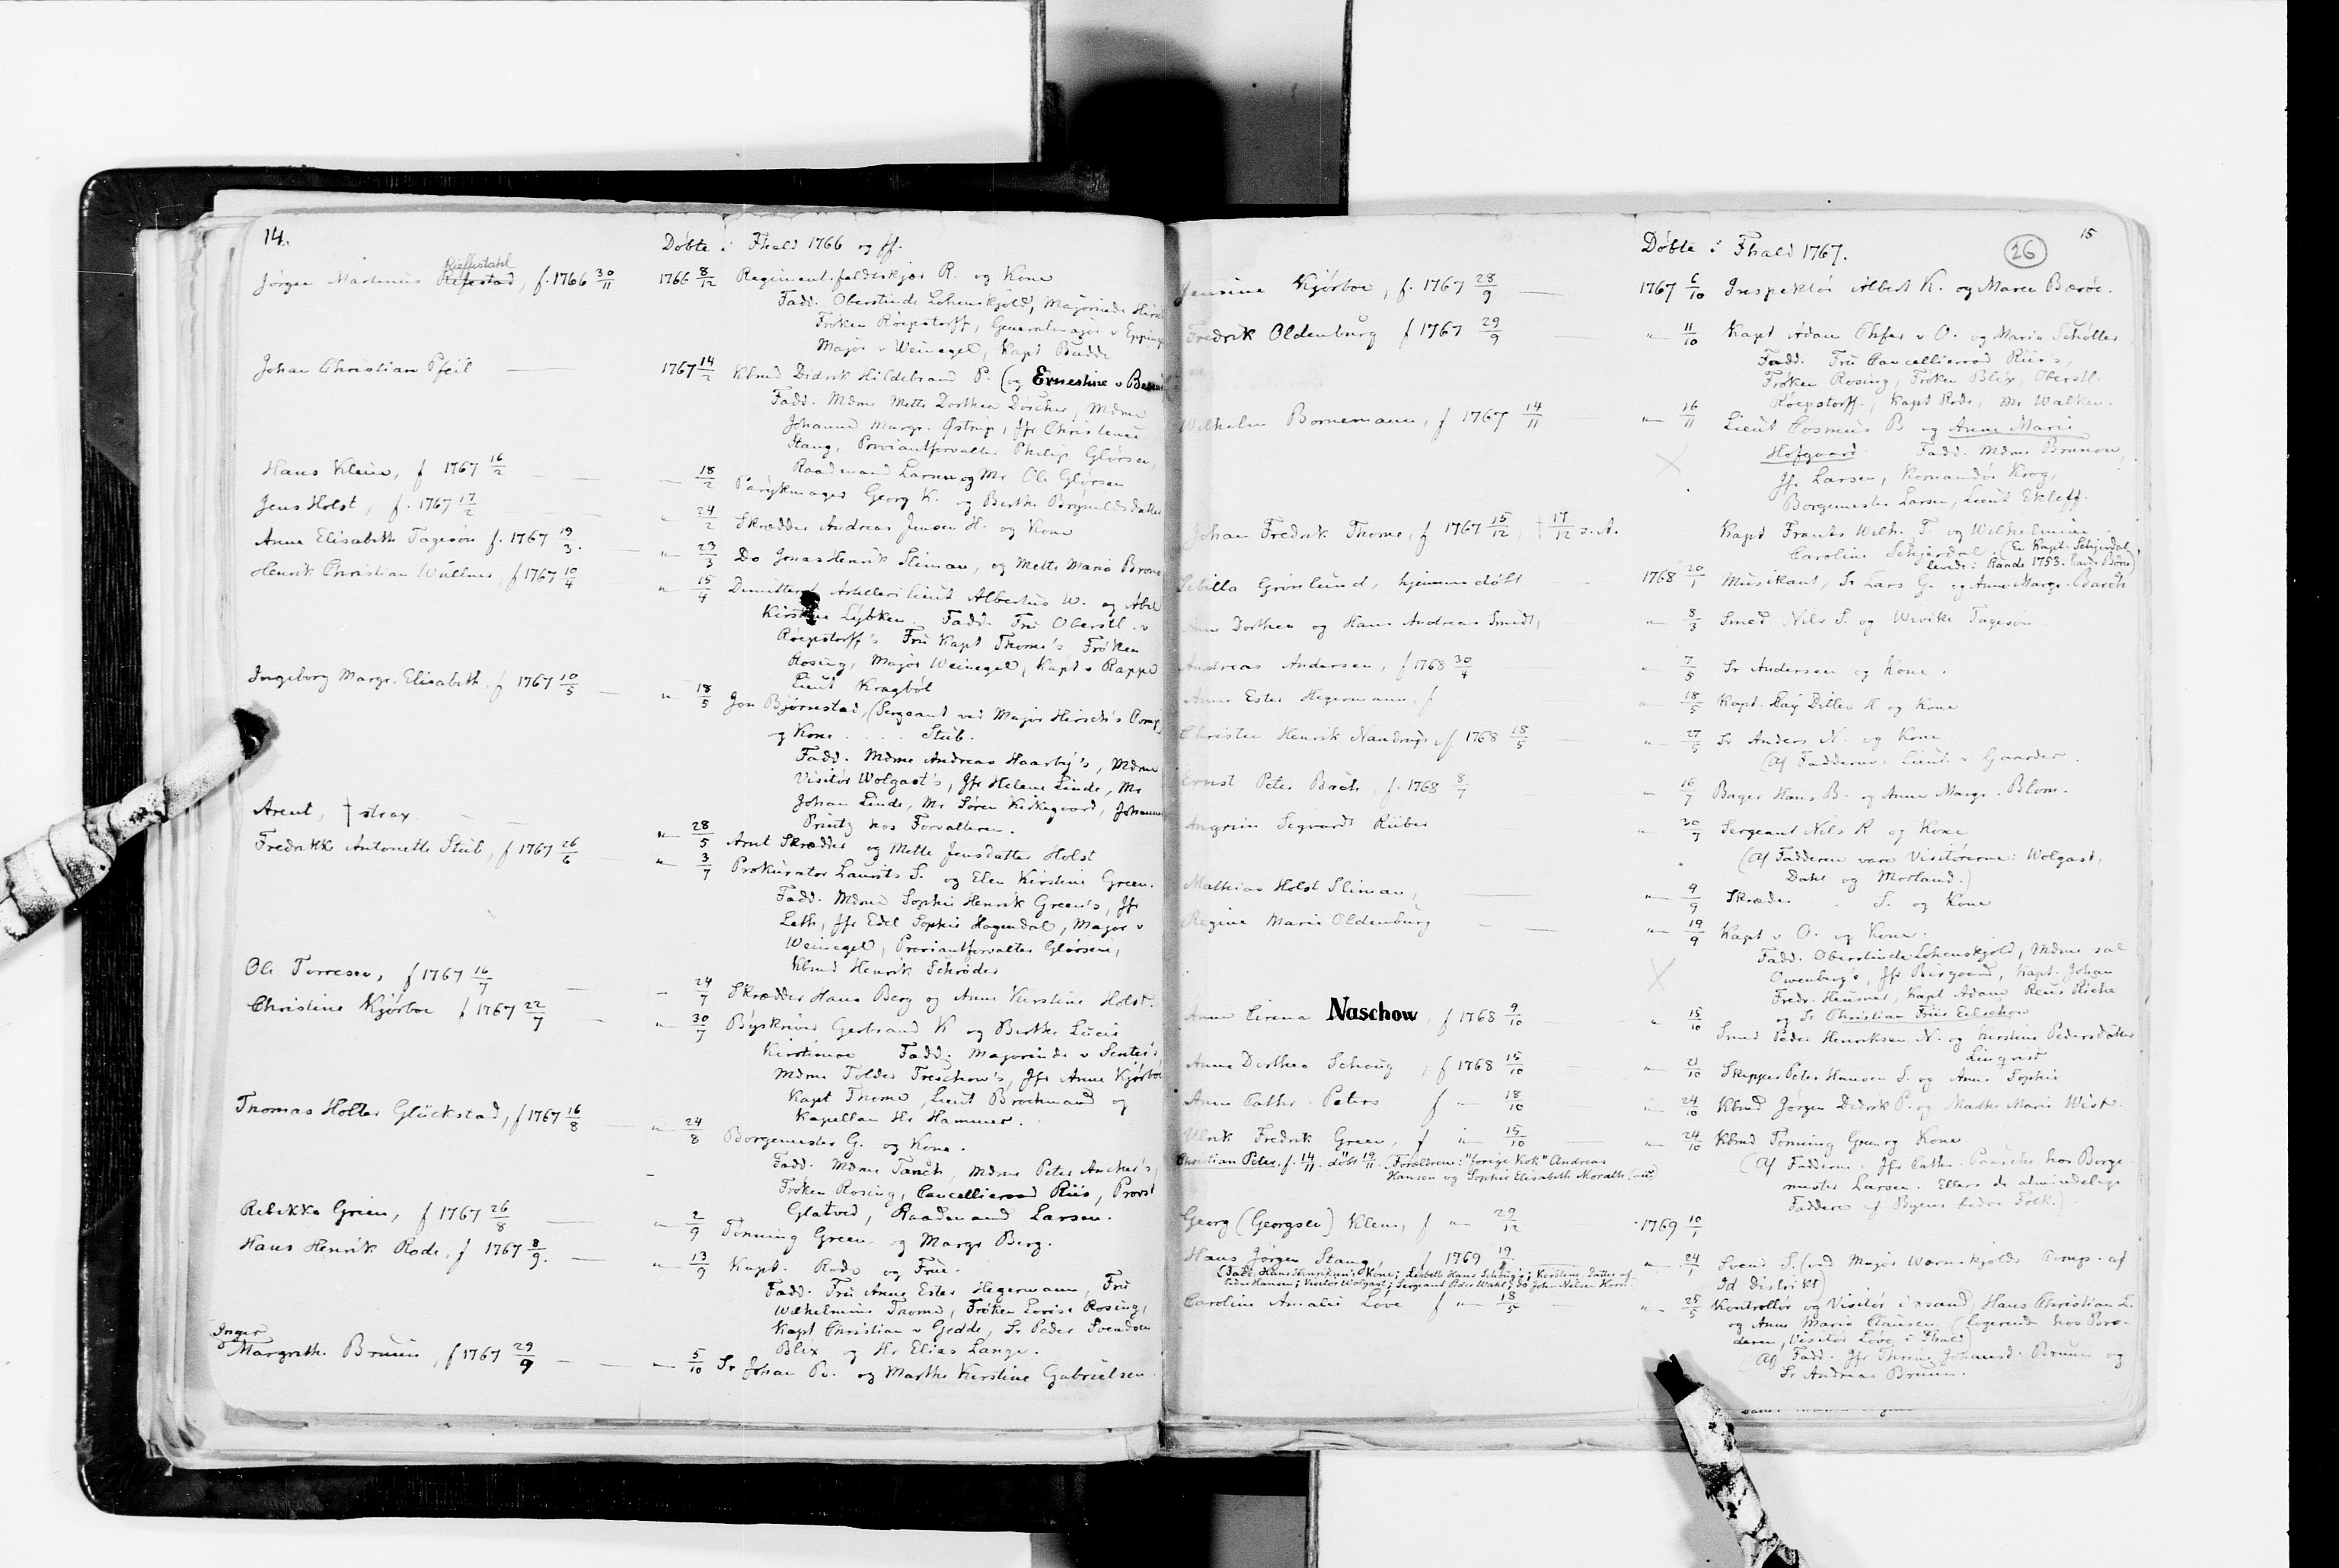 14.
Døbte i Fhald 1766 og ff.
Rieffestahl
Jørgen Martinus Refestad, f. 1766 30/11
1766 8/12 Regimentsfeldtskjær R. og Kone
Fadd. Oberstinde Lohenskjold, Majorinde
Frøken Röepstorff, Generalmajor v
Major v Weinegel, Kapt Budde
Johan Christian Pfeil
1767 14/2 Kbmd Didrik Hildebrand P. (og Ernestine v
Fadd. Mdme Mette Dorthea Döscher, Mdme
Johanne Margr. Østrup, Jfr Christence
Stang, Proviantforvalter Philip Glørsen,
Raadmand Larsen og Mr Ole Glørsen
Hans Klein, f 1767 16/2
" 18/2 Parykmager Georg K. og Berthe Brynildsdatter
Jens Holst, f. 1767 17/2
" 24/2 Skrædder Andreas Jensen H. og Kone
Anne Elisabeth Tagesøn f. 1767 19/3.
" 23/3 Do Jonas Henrik Sliman, og Mette Maria
Henrik Christian Wüllner, f 1767 10/4
" 15/4 Dimitteret Artelleri Lieut Albertus W. og Abel
Kirstine Lybken. Fadd. Fru Oberstl. v
Röepstorff's Fru Kapt Thome's, Frøken
Rosing, Major Weinegel, Kapt v Rappe
Lieut Kragbøl
Ingeborg Margr. Elisabeth f 1767 10/5
" 18/5 Jon Bjørnestad, (Sergeant ved Major Hirsch's Comp)
og Kone . . . . Stub.
Fadd. Mdme Andreas Haarby's, Mdme
Visitør Wolgast's, Jfr Helene Linde, Mr
Johan Linde, Mr Søren Kirkegaard, Johannes
Printz hos Forvalteren.
Arent, † strax
" 28/5 Arnt Skrædder og Mette Jensdatter Holst
Fredrikke Antonette Stub, f 1767 26/6
" 3/7 Prokurator Laurits S. og Elen Kirstine Green.
Fadd. Mdme Sophie Henrik Green's, Jfr
Leth, Jfr Edel Sophie Hagendal, Major v
Weinegel, Proviantforvalter Glørsen,
Kbmd Henrik Schrøder
Ole Torresen, f 1767 16/7
" 24/7 Skrædder Hans Berg og Anne Kirstine Holst.
Christine Kjørboe f 1767 22/7
" 30/7 Byskriver Gerbrand K og Berthe Lucie
Kirstinæ Fadd. Majorinde v Senter's,
Mdme Tolder Treschow's, Jfr Anne Kjørboe
Kapt Thome, Lieut Brochmand og
Kapellan Hr Hammer.
Thomas Holter Glückstad, f 1767 16/8
" 24/8 Borgemester G. og Kone.
Fadd. Mdme Tanch, Mdme Peter Ancher's,
Frøken Rosing, Cancelliraad Riis, Provst
Glatved, Raadmand Larsen.
Rebekke Green, f 1767 26/8
" 2/9 Tønning Green og Margr Berg.
Hans Henrik Rode, f 1767 8/9.
" 13/9 Kapt. Rode og Frue.
Fadd. Fru Anne Ester Hegermann, Fru
Wilhelmine Thome, Frøken Lovise Rosing,
Kapt Christian v Gedde, Sr Peder Svendsen
Blix og Hr Elias Lange.
Inger
Margrethe Bruun, f 1767 29/9
" 5/10 Sr Johan B. og Marthe Kirstine Gabrielsen
15
Døbte i Fhald 1767. 26
Jensine Kjørboe, f. 1767 28/9
1767 6/10 Inspektør Albert K. og Maren Bærøe.
Fredrik Oldenburg f 1767 29/9
" 11/10 Kapt Adam Chfer v O. og Maria Schøller
Fadd. Fru Cancelliraad Riis's,
Frøken Rosing, Frøken Blix, Oberstl.
Röepstorff, Kapt Rode, Mr Walken.
Wilhelm Bornemann, f 1767 14/11
" 16/11 Lieut Cosmus B og Anne Marie
Hofgaard. Fadd. Mdme Brunow,
Jfr Larsen, Komandør Krog,
Borgemester Larsen, Lieut Ekleff.
Johan Fredrik Thome, f 1767 15/12, † 17/12 s. A.
Kapt Frants Wilh. T. og Wilhelmine
Caroline Schjerdal. (En Kapt. Schjerdal
levede i Raade 1753. havde Børn)
Sebilla Grønlund, hjemmedøbt
1768 20/1 Musikant, Sr Lars G. og Anne Margr. Barth
Anne Dorthea og Hans Andreas Smidt,
" 8/3 Smed Nils S. og Wivike Tagesøn
Andreas Andersen, f 1768 30/4
" 7/5 Sr Andersen og Kone.
Anne Ester Hegermann, f
" 18/5 Kapt. Caÿ Ditlev H og Kone
Christen Henrik Nandrup, f 1768 18/5
" 27/5 Sr Anders N. og Kone
(Af Fadderne: Lieut. v Gaarder.
Ernst Peter Bach, f. 1768 8/7
" 16/7 Bager Hans B. og Anne Margr. Blom.
Angrim Segvardt Rüber
" 30/7 Sergeant Nils R og Kone
(Af Fadderne vare Visitørerne: Wolgast,
Dahl og Morland.)
Mathias Holst Sliman,
" 9/9 Skræder S. og Kone
Regine Marie Oldenburg
" 19/9 Kapt v O. og Kone.
Fadd. Oberstinde Lohenskjold, Mdme sal
Owenberg's, Jfr Birgaard, Kapt. Johan
Fredr. Heusner, Kapt Adam Reus Riche
og Sr Christian Friis Eilschow
Anne Lirena Naschow f 1768 9/10
" 15/10 Smed Peder Henriksen N. og Kirstine Pedersdatter
Linqvist
Anne Dorthea Schoug, f 1768 15/10
" 21/10 Skipper Peter Hansen S. og Anne Sophie
Anne Cathr. Peters f " 18/10
" 24/10 Kbmd Jørgen Didrik P. og Marthe Marie Wist.
Ulrik Fredrik Green, f " 15/10
" 24/10 Kbmd Tønning Green og Kone
(Af Fadderne: Jfr Cathr. Paasche hos Borge-
mester Larsen. Ellers de almindelige
Faddere af Byens bedre Folk.)
Christian Peter, f. 14/11 døbt 19/11. (Forældrene: "forige Kok" Andreas
Hansen og Sophie Elisabeth
Georg (Georgsen) Klem, f " 29/12
1769 10/1
Hans Jørgen Stang, f 1769 19/1
" 24/1 Svend S. (ved Major Wærnskjolds Comp. af
Id distrikt)
(Fadd. Hans Henriksen's Kone; Lisbeth Hans Schbugs; Kirstine Datter af
Peder Hansen; Visitør Wolgast; Sergeant Peder Wahl; Do John Nilsen Horn
Caroline Amalie Love f " 18/5
" 25/5 Kontrollør og Visitør i Xsand, Hans Christian L.
og Anne Marie Clausen (logerende hos Bro-
deren, Visitør Løve i Fhald)
(Af Fadd: Jfr Thrine Johansd. Bruun og
Sr Andreas Bruun.